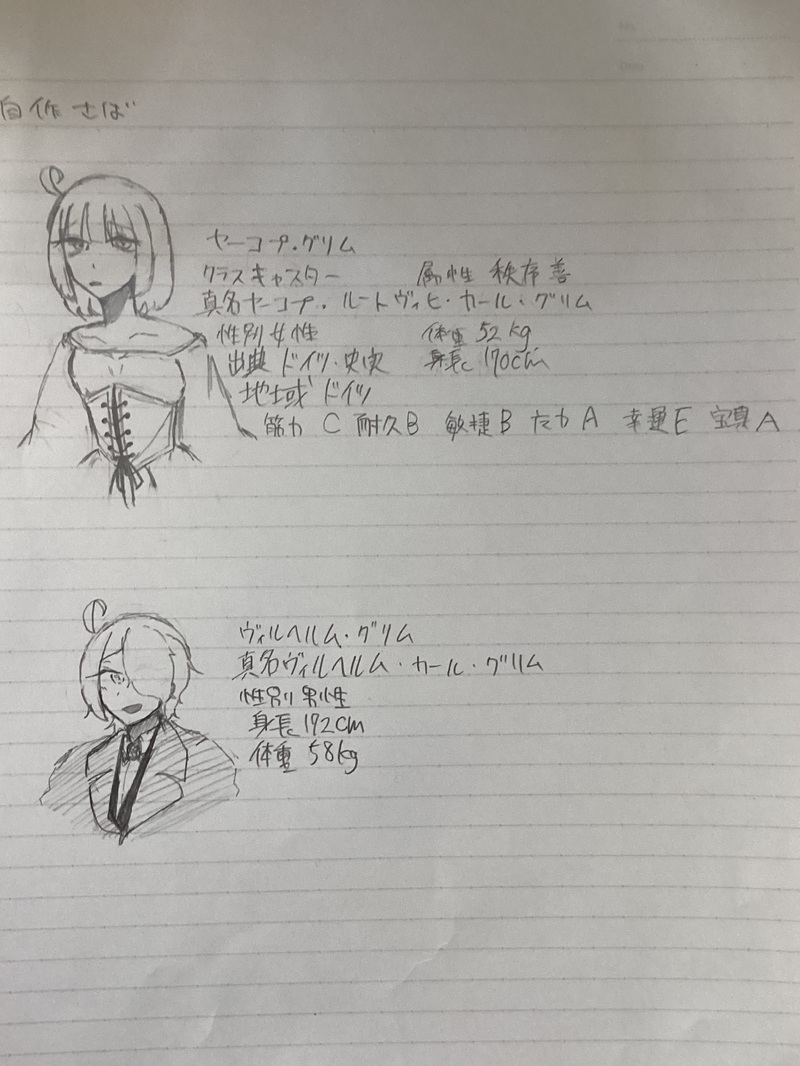 自作さば
ヤーコプ・グリム
クラスキャスター 属性 秩序善
真名ヤーコプ・ルートヴィヒ・カール・グリム
性別女性 体重 52kg
出典 ドイツ・史実 身長 170cm
地域 ドイツ
筋力 C 耐久B 敏捷B 魔力 A 幸運E 宝具A
ヴィルヘルム・グリム
真名ヴィルヘルム・カール・グリム
性別 男性
身長 172cm
体重 58kg